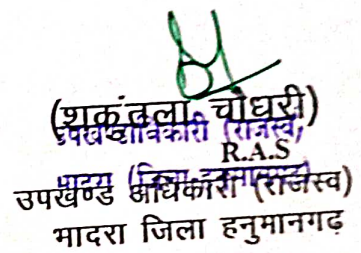 (शकुंतला चौधरी)
उपखण्ड अधिकारी (राजस्व,
R.A.S
भादरा (जिला हनुमानगढ़)
उपखण्ड अधिकारी (राजस्व)
भादरा जिला हनुमानगढ़